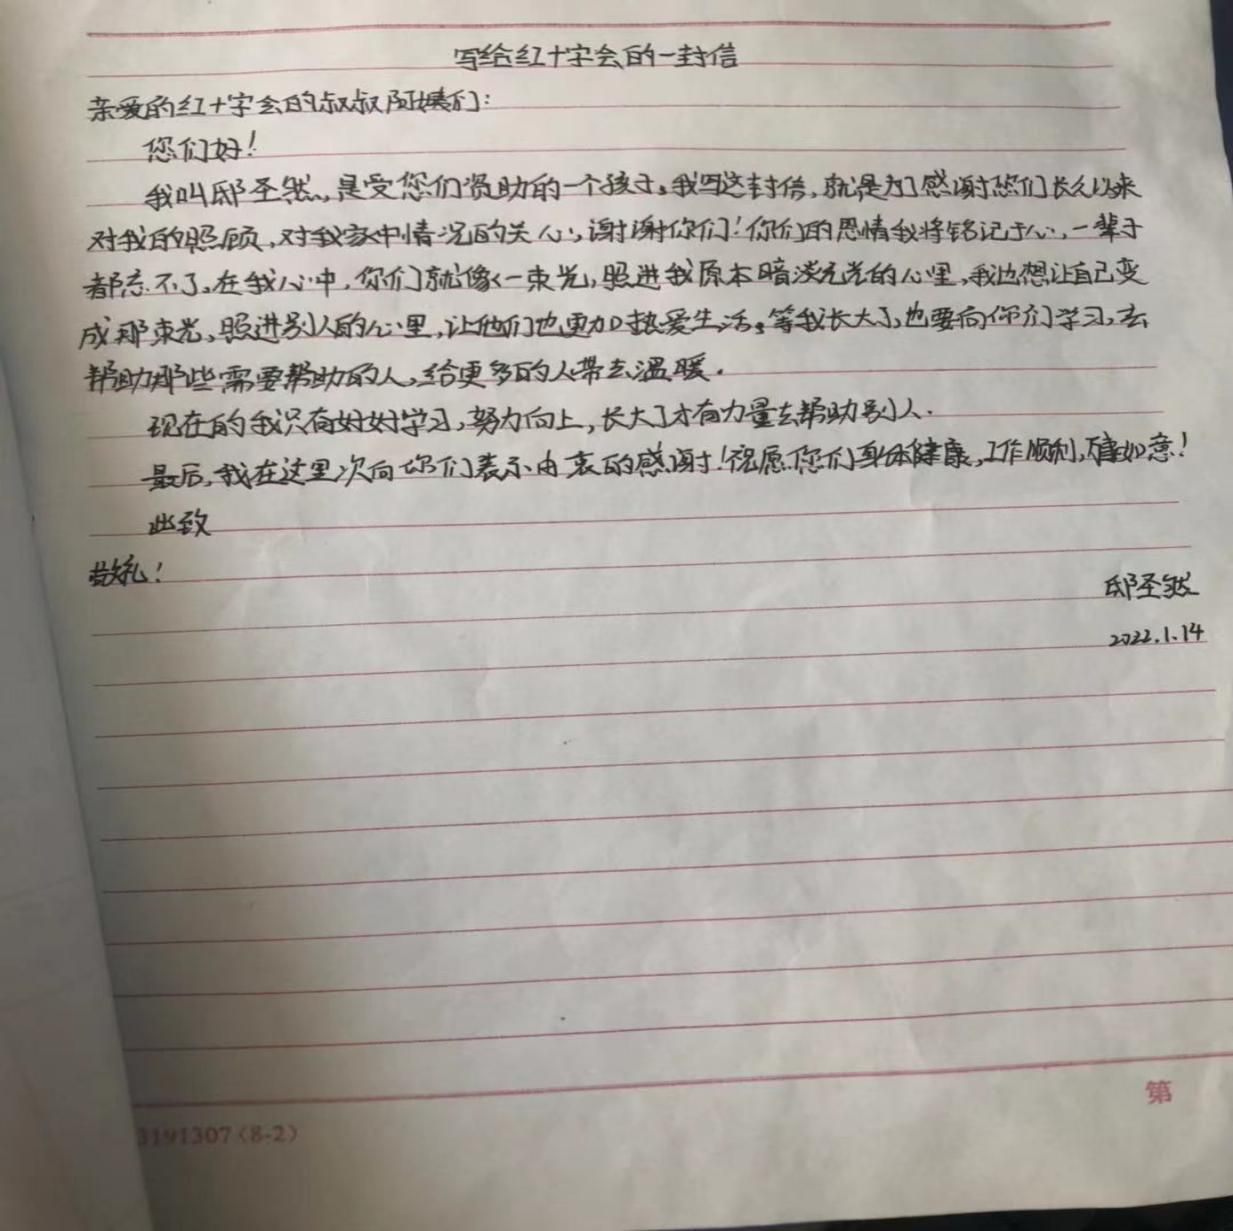 写给红十字会的一封信
亲爱的红十字会的叔叔阿姨们:
您们好!
我叫邸圣然,是受您们资助的一个孩子。我写这封信,就是为了感谢您们长久以来
对我的照顾,对我家中情况的关心,谢谢你们!你们的恩情我将铭记于心,一辈子
都忘不了。在我心中,你们就像一束光,照进我原本暗淡无光的心里,我也想让自己变
成那束光,照进别人的心里,让他们也更加热爱生活。等我长大了也要向你们学习,去
帮助那些需要帮助的人,给更多的人带去温暖.
现在的我只有好好学习,努力向上,长大了才有力量去帮助别人.
最后,我在这里次向你们表示由衷的感谢!祝愿您们身体健康,工作顺利,万事如意!
此致
敬礼!
邸圣然
2022.1.14
第
3191307(8-2)